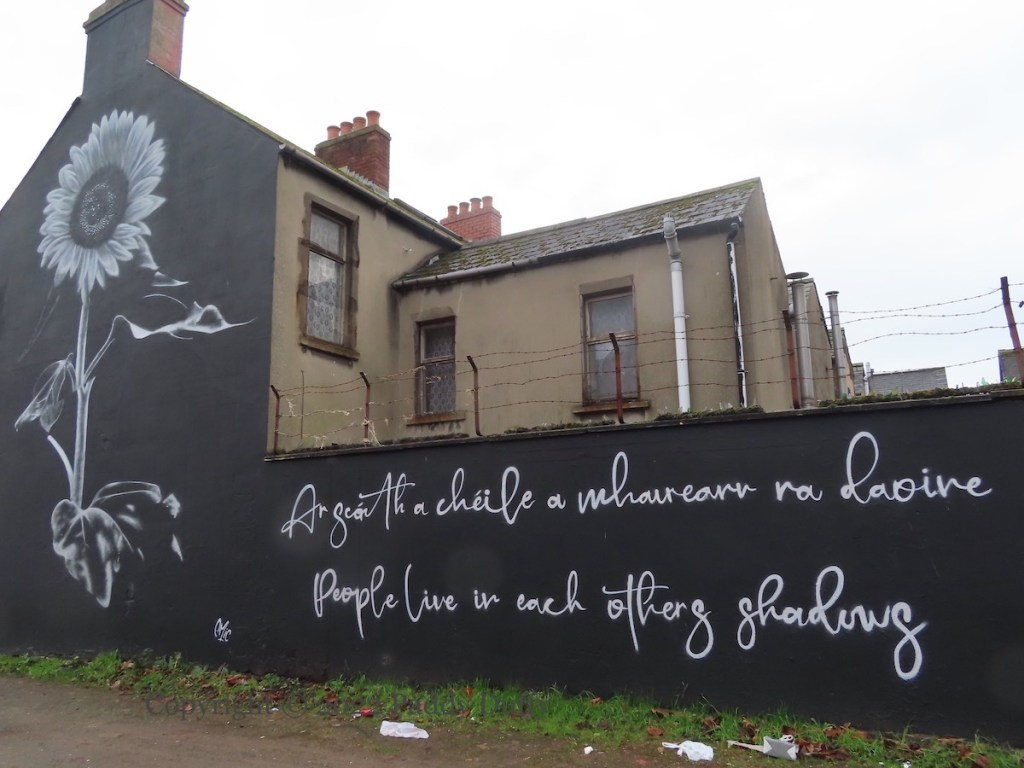 Ar scáth a chéile a mhaireann na daoine
People live in each others shadows
Copyright © Paddy